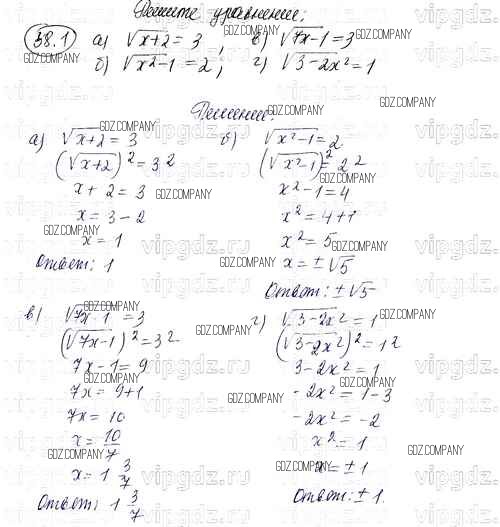 Решите уравнения:
38.1 а) √x+2 = 3 ; в) √7x-1 = 3
б) √x²-1 = 2 ; г) √3-2x² = 1
Решение:
а) √x+2 = 3
(√x+2)² = 3²
x + 2 = 3
x = 3 - 2
x = 1
Ответ: 1
б) √x²-1 = 2
(√x²-1)² = 2²
x²-1 = 4
x² = 4+1
x² = 5
x = ±√5
Ответ: ±√5
в) √7x-1 = 3
(√7x-1)² = 3²
7x-1 = 9
7x = 9+1
7x = 10
x = 10/7
x = 1 3/7
Ответ: 1 3/7
г) √3-2x² = 1
(√3-2x²)² = 1²
3-2x² = 1
-2x² = 1-3
-2x² = -2
x² = 1
x = ±1
Ответ: ±1
GDZ.COMPANY
vipgdz.ru